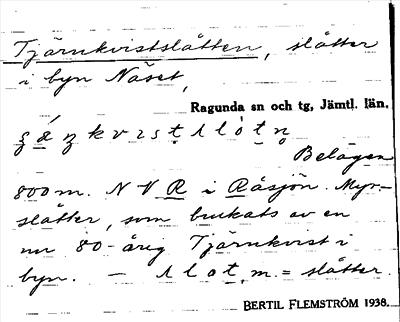 Tjärnkvistslåtten, slåtter
i byn Näset,
Ragunda sn och tg, Jämtl. län.
Belägen
800 m. N V R i Råsjön. Myr-
slåtter, som brukats av en
nu 80-årig Tjärnkvist i
byn. – slåt, m. = slåtter.
BERTIL FLEMSTRÖM 1938.